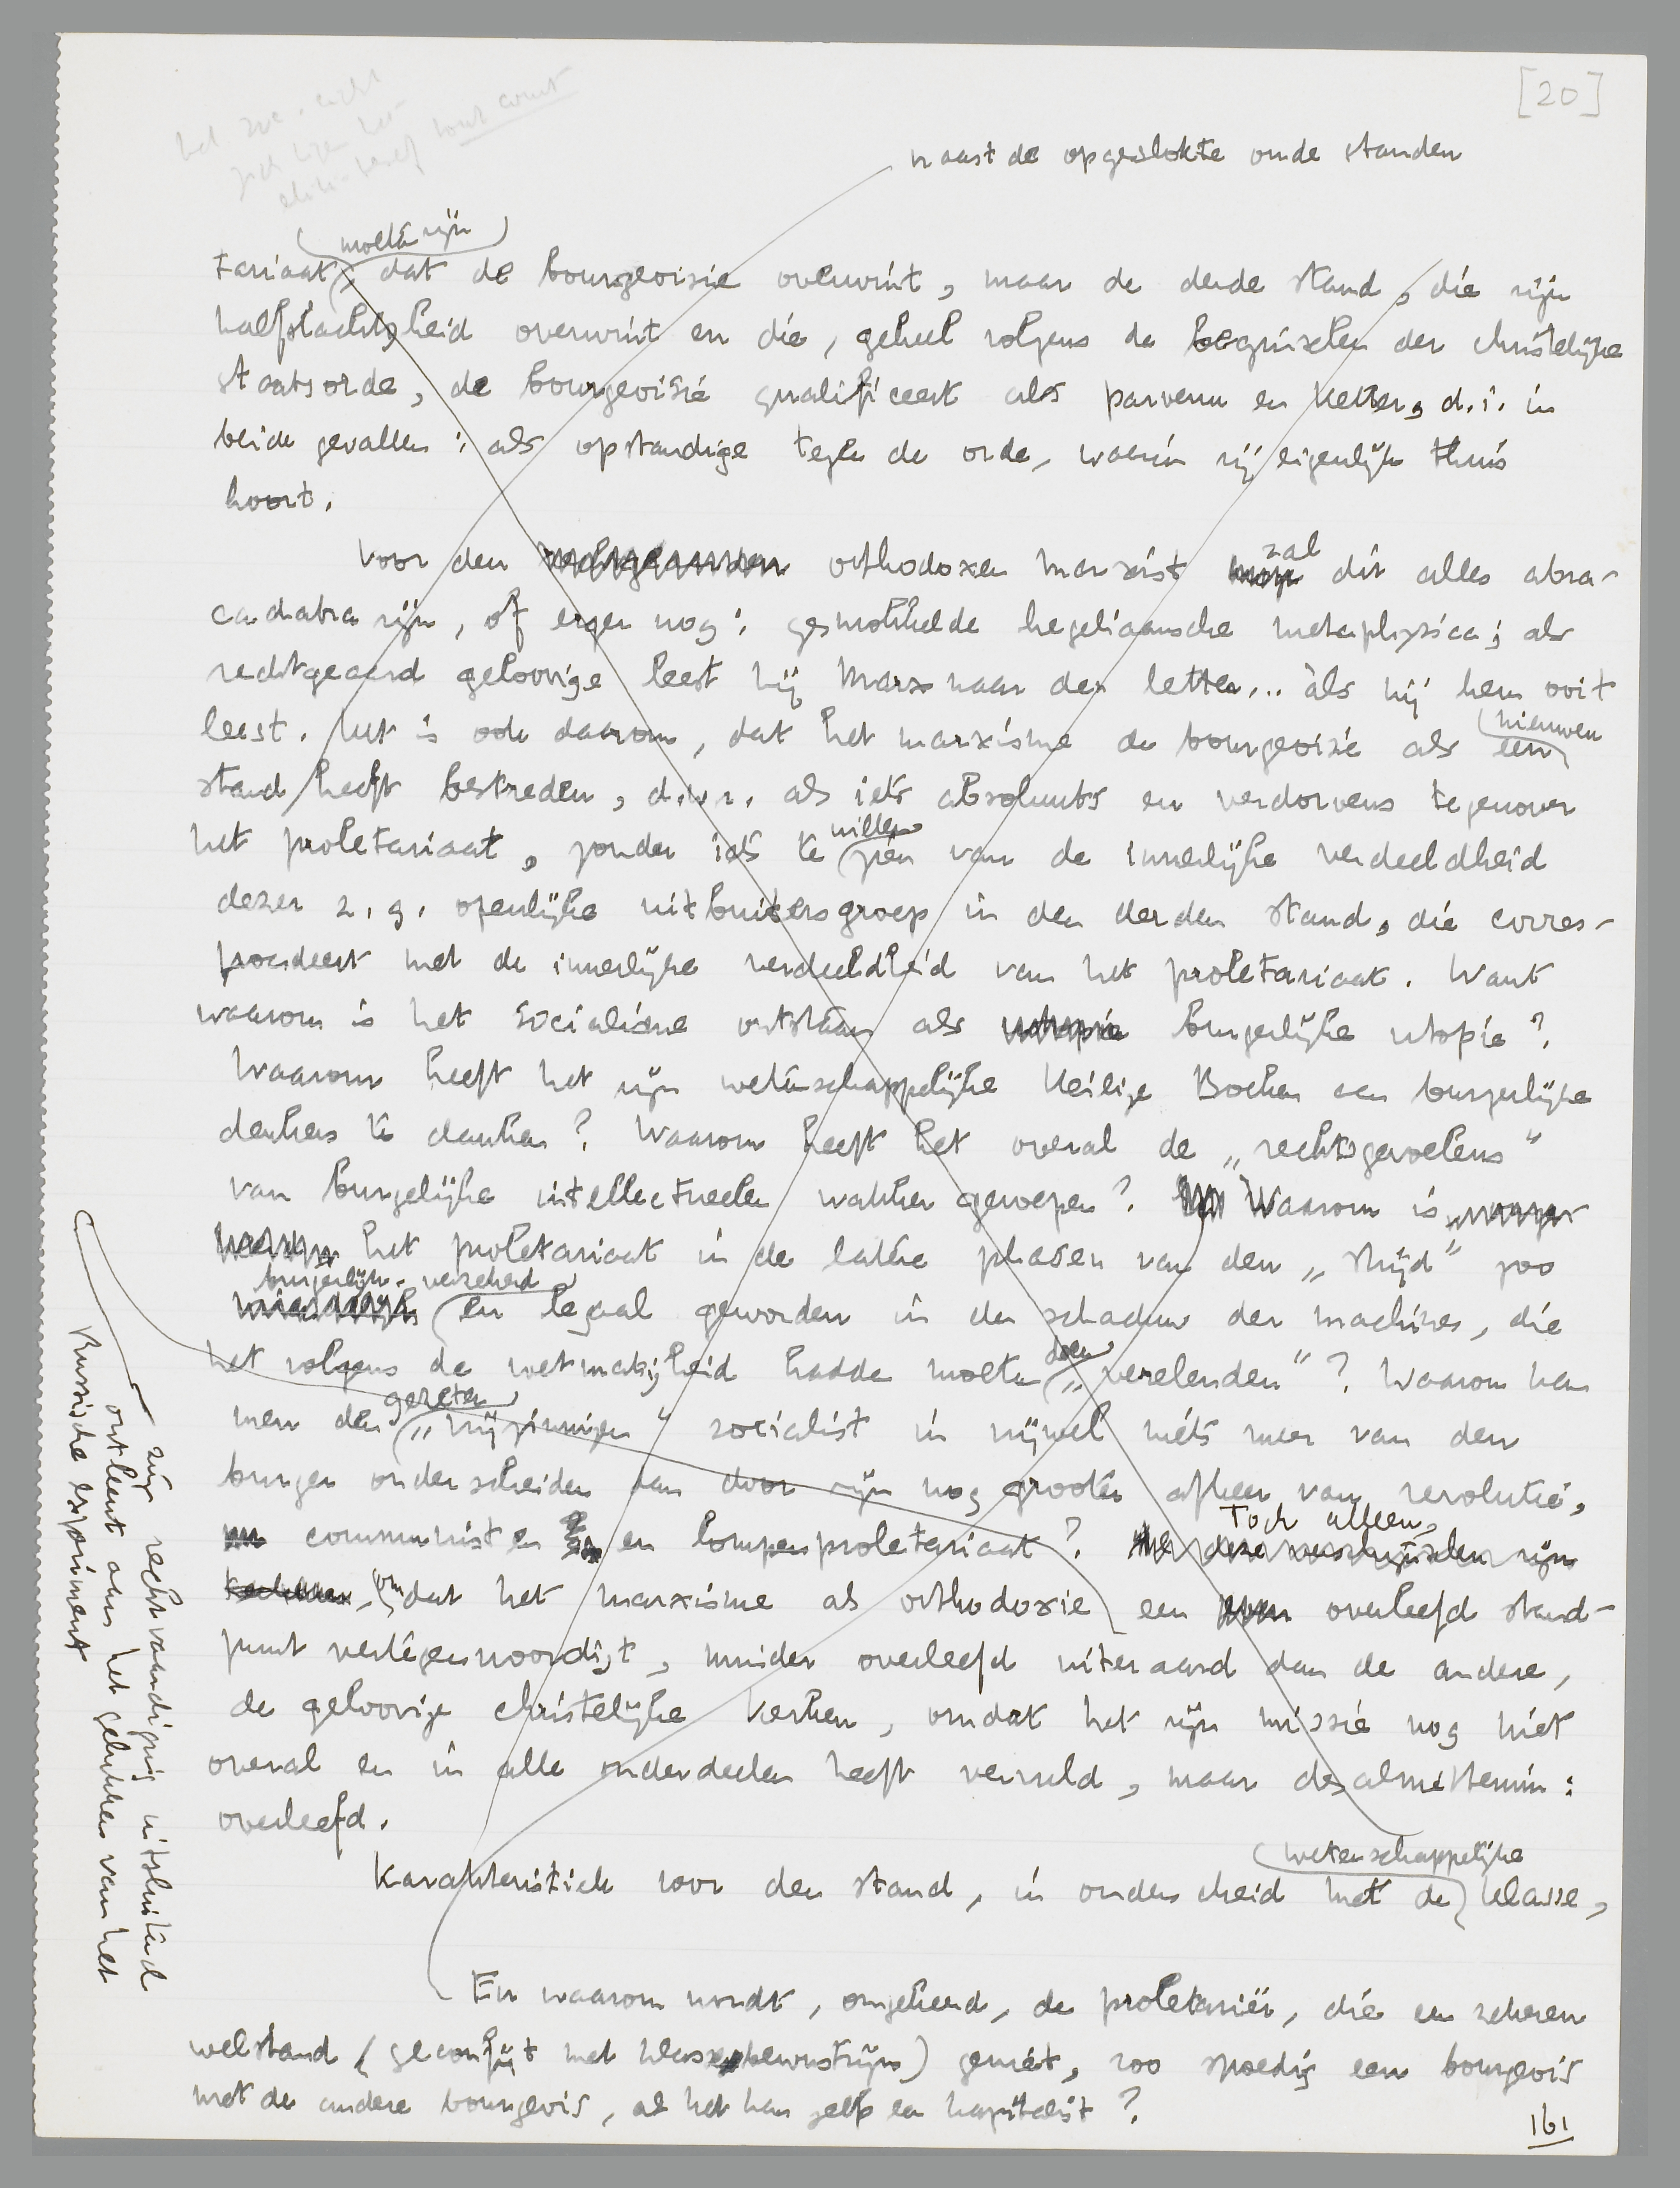 [20]
naast de opgeslokte oude standen
(moeten zijn)
tariaat, dat de bourgeoisie overwint, maar de derde stand, die zijn
halfslachtigheid overwint en die, geheel volgens de beginselen der christelijke
staatsorde, de bourgeoisie qualificeert als parvenu en ketter, d.i. in
beide gevallen: als opstandige tegen de orde, waarin zij eigenlijk thuis
hoort.
Voor den orthodoxen marxist zal dit alles abra-
cadabra zijn, of erger nog: gesmokkelde hegeliaansche metaphysica; als
rechtgeaard geloovige leest hij Marx naar den letter... àls hij hem ooit
leest. Het is ook daarom, dat het marxisme de bourgeoisie als een nieuwen
stand heeft bestreden, d.w.z. als iets absoluuts en verdorvens tegenover
het proletariaat, zonder iets te willen zien van de innerlijke verdeeldheid
dezer z.g. openlijke uitbuitersgroep in den derden stand, die corres-
pondeert met de innerlijke verdeeldheid van het proletariaat. Want
waarom is het socialisme ontstaan als utopie burgerlijke utopie?
Waarom heeft het zijn wetenschappelijke Heilige Boeken aan burgerlijke
denkers te danken? Waarom heeft het overal de „rechtsgevoelens"
van burgerlijke intellectueelen wakker geroepen? Waarom is
het proletariaat in de latere phasen van den „strijd" zoo
burgerlijk, verzekerd en legaal geworden in de schaduw der machines, die
het volgens de wetmatigheid hadden moeten doen „verelenden"? Waarom kan
men den gezeten „vrijzinnigen" socialist in vrijwel niets meer van den
burger onderscheiden dan door zijn nog grooter afkeer van revolutie,
communisten en lompenproletariaat? Toch alleen,
omdat het marxisme als orthodoxie een overleefd stand-
punt vertegenwoordigt, minder overleefd uiteraard dan de andere,
de geloovige christelijke kerken, omdat het zijn missie nog niet
overal en in alle onderdeelen heeft vervuld, maar desalniettemin:
overleefd.
Karakteristiek voor den stand, in onderscheid met de wetenschappelijke klasse,
En waarom wordt, omgekeerd, de proletariër, die een zekeren
welstand (geconfijt met klassebewustzijn) geniet, zoo spoedig een bourgeois
met de andere bourgeois, als het kan zelfs een kapitalist?
zijn rechtvaardiging uitsluitend
ontleent aan het gelukken van het
Russische experiment
161